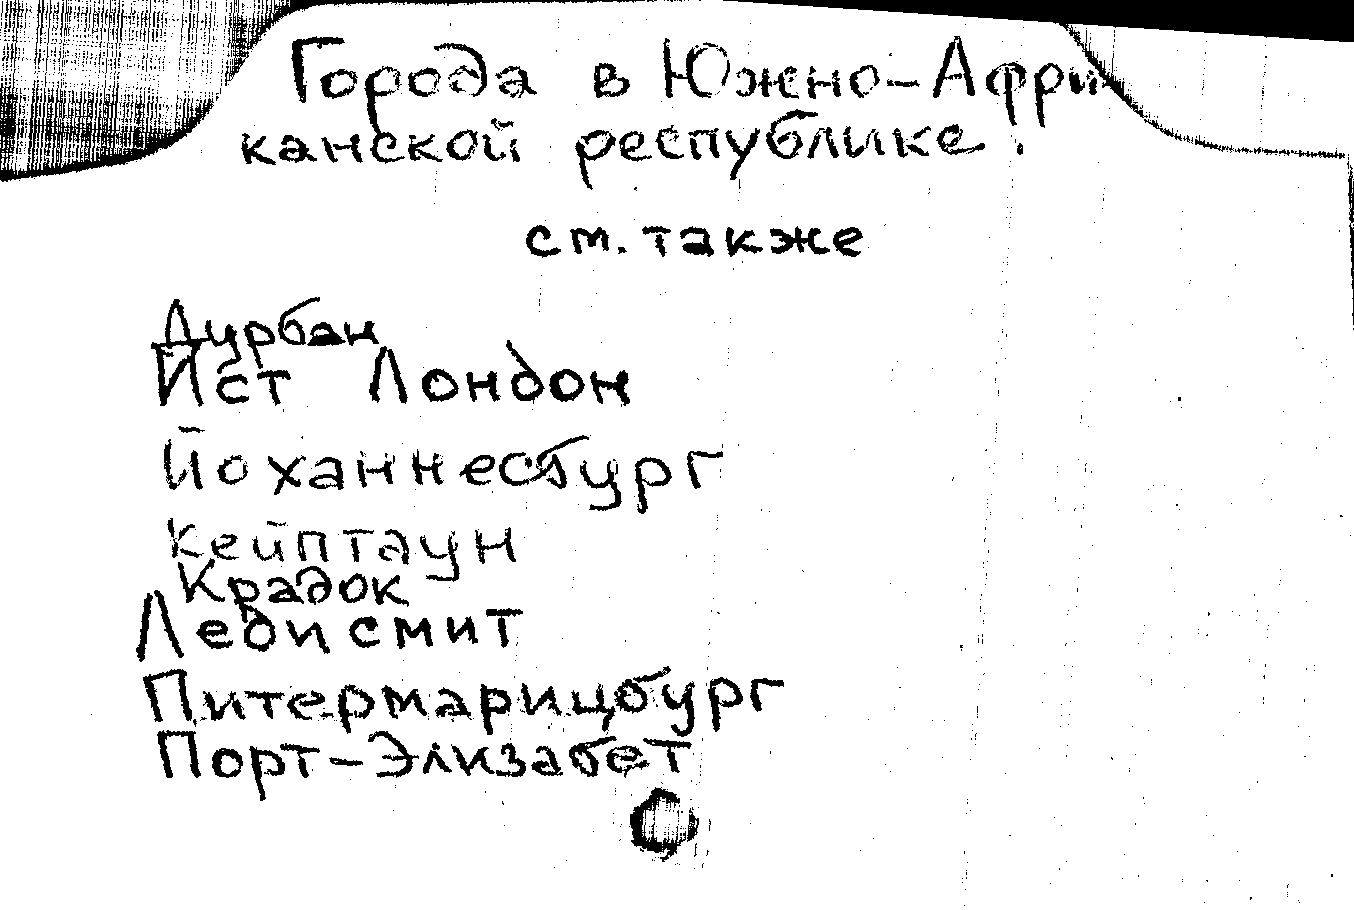 Города в Южно-Афри
канской республике.
см. также
Дурбан
Ист Лондон
Йоханнесбург
Кейптаун
Крадок
Ледисмит
Питермарицбург
Порт-Элизабет